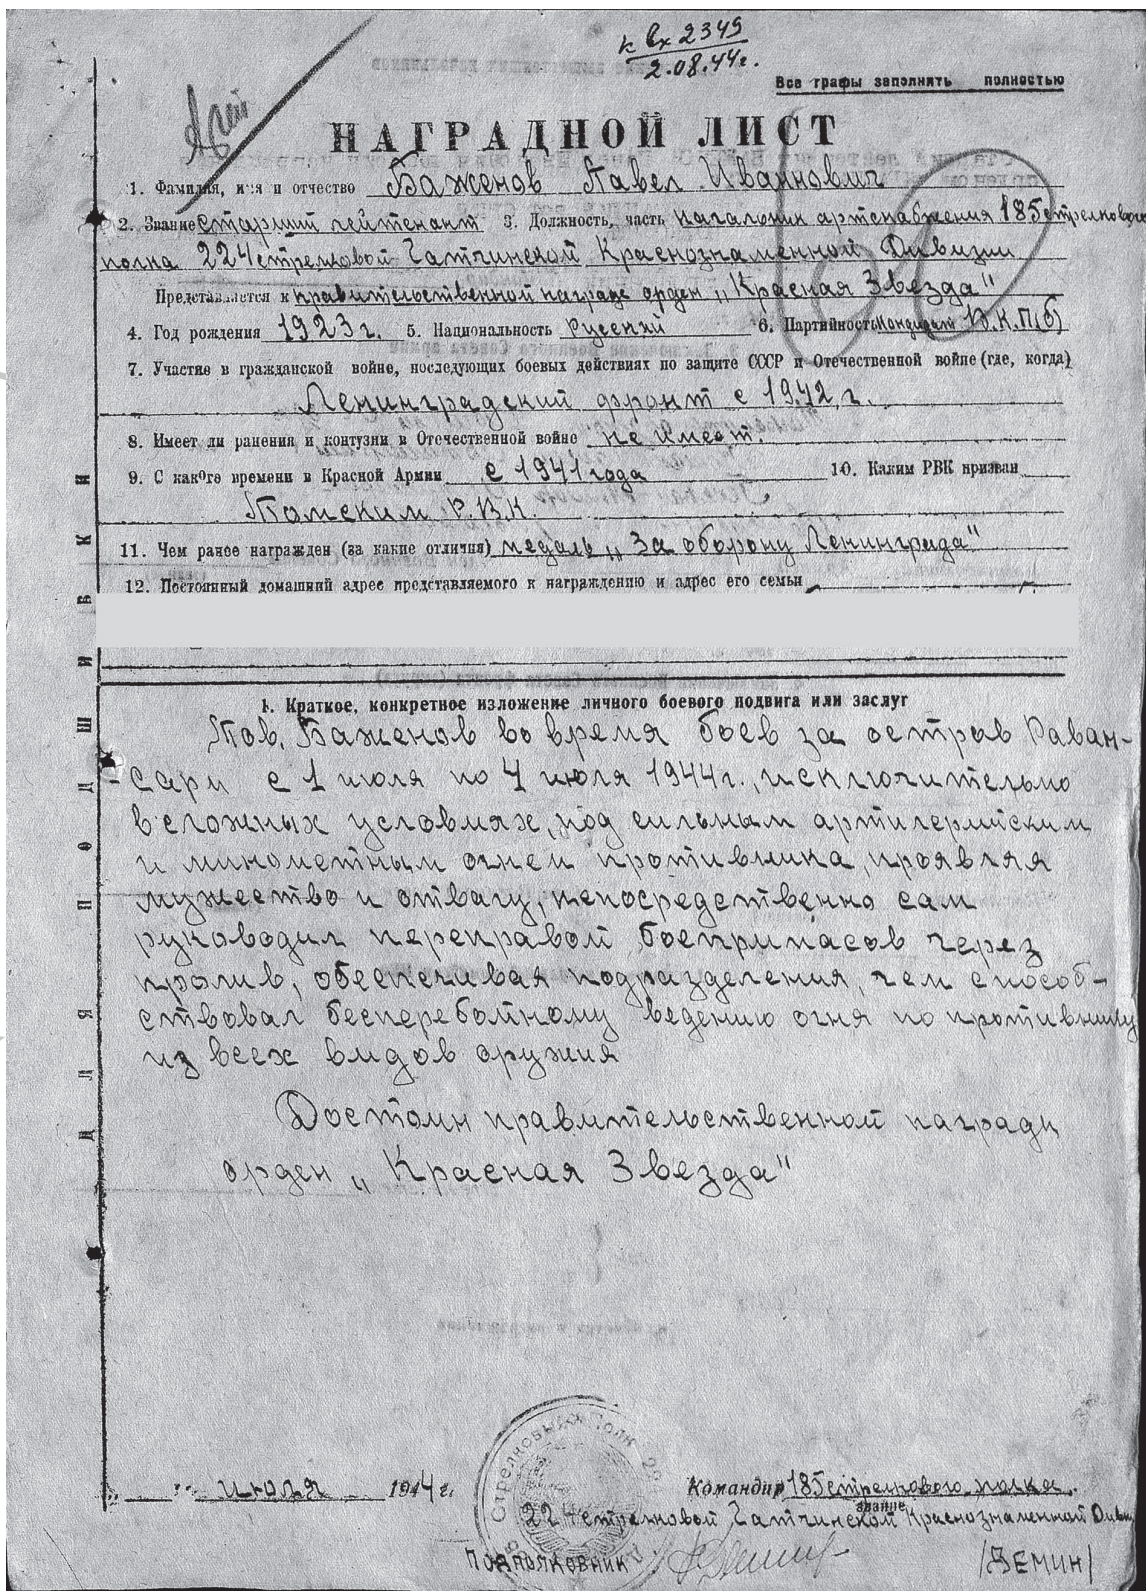 к вх 2349
2.08.44г.
Все графы заполнять полностью
НАГРАДНОЙ ЛИСТ
1. Фамилия, имя и отчество Баженов Павел Иванович
2. Звание старший лейтенант 3. Должность, часть начальник артснабжения 185 стрелкового
полка 224 стрелковой Гатчинской Краснознаменной Дивизии
Представляется к правительственной награде орден „Красная Звезда"
4. Год рождения 1923 г. 5. Национальность Русский 6. Партийность Кандидат В.К.П(б)
7. Участие в гражданской войне, последующих боевых действиях по защите СССР и Отечественной войне (где, когда)
Ленинградский фронт с 1942 г.
8. Имеет ли ранения и контузии в Отечественной войне не имеет.
9. С какого времени в Красной Армии с 1941 года 10. Каким РВК призван
Томским Р.В.К.
11. Чем ранее награжден (за какие отличия) медаль „За оборону Ленинграда"
12. Постоянный домашний адрес представляемого к награждению и адрес его семьи
ДЛЯ ПОДШИВКИ
1. Краткое, конкретное изложение личного боевого подвига или заслуг
Тов. Баженов во время боев за остров Раван-
-сари с 1 июля по 4 июля 1944г., исключительно
в сложных условиях, под сильным артилерийским
и минометным огнем противника, проявляя
мужество и отвагу, непосредственно сам
руководил переправой боеприпасов через
пролив, обеспечивая подразделения, чем способ-
ствовал бесперебойному ведению огня по противнику
из всех видов оружия
Достоин правительственной награды
орден „Красная Звезда"
" " июля 1944 г. Командир 185 стрелкового полка.
звание
224 стрелковой Гатчинской Краснознаменной Дивиз
подполковник /ДЕМИН/
Стрелковый Полк